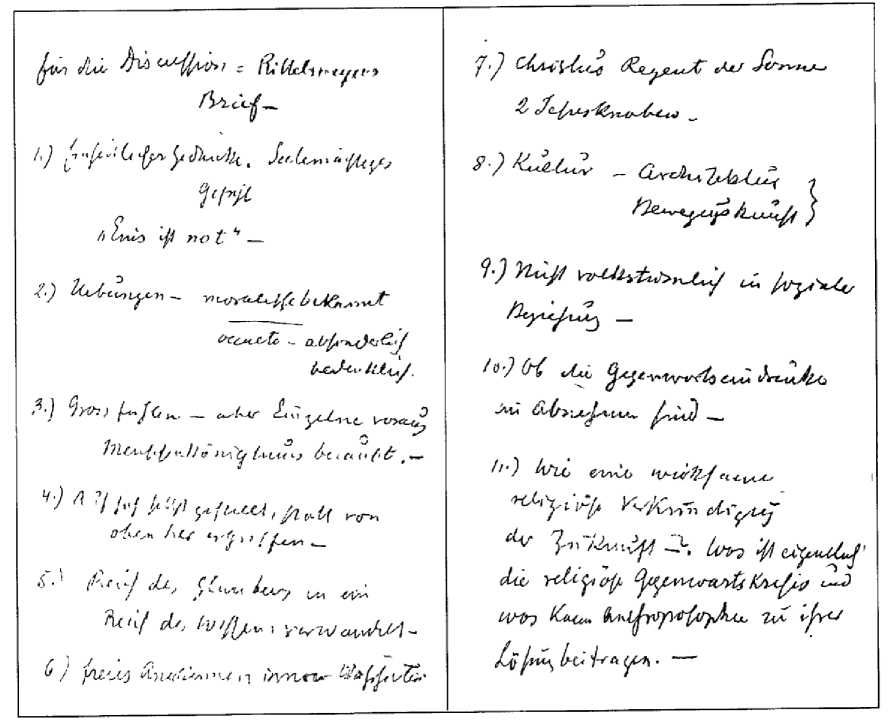 für die Discussion = Rittelmeyers
Brief –
1.) Einheitlicher Gedanke. Seelenmässiges
Gefühl
„Eins ist not“ –
2.) Uebungen – moralische bekannt
occulte – absonderlich
bedenklich.
3.) Gross fühlen – aber Einzelne voraus
Menschenkönigtums beraubt. –
4.) sich selbst gesucht, statt von
oben her ergriffen –
5.) Reich des Glaubens in ein
Reich des Wissens verwandelt –
6.) freies Anerkennen innerer
7.) Christus Regent der Sonne
2 Jesusknaben –
8.) Kultur – Architektur
Bewegungskunst }
9.) Nicht volkstümlich in sozialer
Beziehung –
10.) Ob die Gegenwartseindrücke
im Abnehmen sind –
11.) Wie eine wirksame
religiöse Verkündigung
der Zukunft –?. Was ist eigentlich
die religiöse Gegenwartskrisis und
was kann Anthroposophie zu ihrer
Lösung beitragen. –